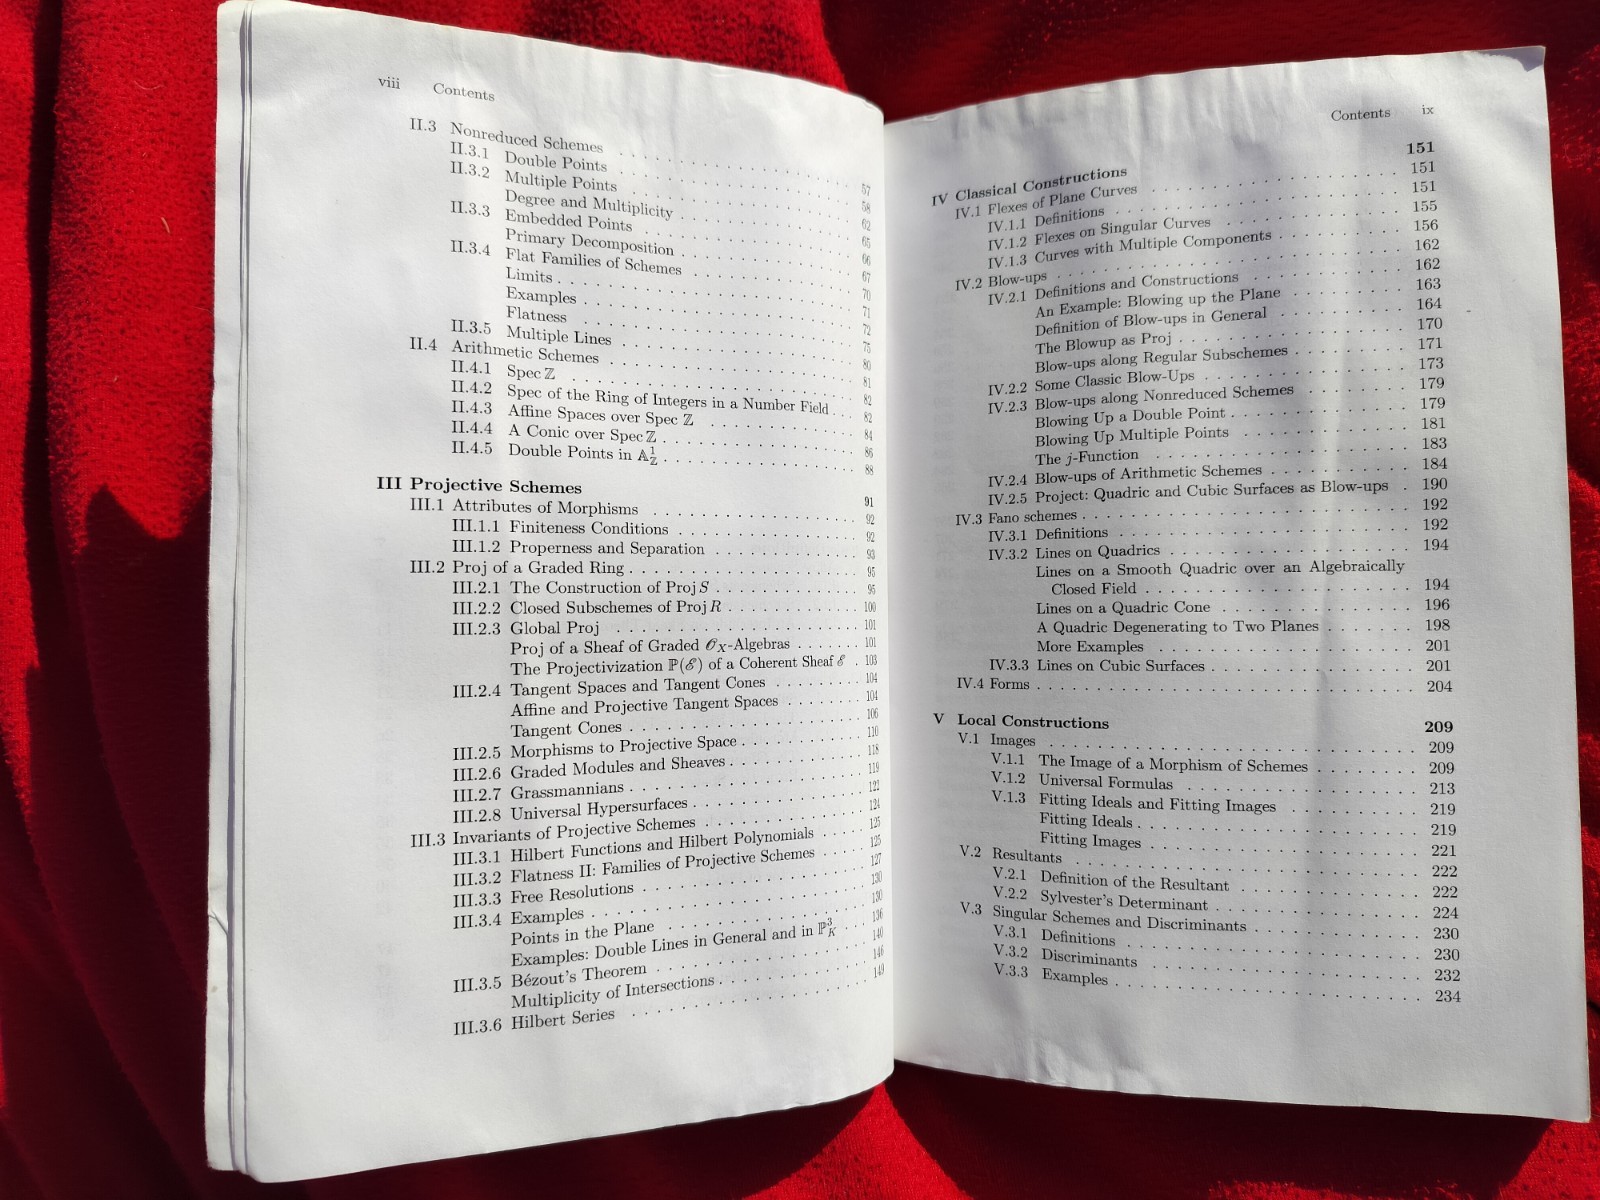 viii Contents
II.3 Nonreduced Schemes . . . . . 57
II.3.1 Double Points . . . . . 58
II.3.2 Multiple Points . . . . . 62
Degree and Multiplicity . . . . . 65
II.3.3 Embedded Points . . . . . 66
Primary Decomposition . . . . . 67
II.3.4 Flat Families of Schemes . . . . . 70
Limits . . . . . 71
Examples . . . . . 72
Flatness . . . . . 75
II.3.5 Multiple Lines . . . . . 80
II.4 Arithmetic Schemes . . . . . 81
II.4.1 Spec ℤ . . . . . 82
II.4.2 Spec of the Ring of Integers in a Number Field . . . 82
II.4.3 Affine Spaces over Spec ℤ . . . . . 84
II.4.4 A Conic over Spec ℤ . . . . . 86
II.4.5 Double Points in 𝔸¹_ℤ . . . . . 88
III Projective Schemes 91
III.1 Attributes of Morphisms . . . . . 92
III.1.1 Finiteness Conditions . . . . . 92
III.1.2 Properness and Separation . . . . . 93
III.2 Proj of a Graded Ring . . . . . 95
III.2.1 The Construction of Proj S . . . . . 95
III.2.2 Closed Subschemes of Proj R . . . . . 100
III.2.3 Global Proj . . . . . 101
Proj of a Sheaf of Graded 𝒪_X-Algebras . . . . . 101
The Projectivization ℙ(ℰ) of a Coherent Sheaf ℰ . 103
III.2.4 Tangent Spaces and Tangent Cones . . . . . 104
Affine and Projective Tangent Spaces . . . . . 104
Tangent Cones . . . . . 106
III.2.5 Morphisms to Projective Space . . . . . 110
III.2.6 Graded Modules and Sheaves . . . . . 118
III.2.7 Grassmannians . . . . . 119
III.2.8 Universal Hypersurfaces . . . . . 122
III.3 Invariants of Projective Schemes . . . . . 124
III.3.1 Hilbert Functions and Hilbert Polynomials . . . . . 125
III.3.2 Flatness II: Families of Projective Schemes . . . . . 125
III.3.3 Free Resolutions . . . . . 127
III.3.4 Examples . . . . . 130
Points in the Plane . . . . . 130
Examples: Double Lines in General and in ℙ³_K . . . 136
III.3.5 Bézout's Theorem . . . . . 140
Multiplicity of Intersections . . . . . 146
III.3.6 Hilbert Series . . . . . 149
Contents ix
IV Classical Constructions 151
IV.1 Flexes of Plane Curves . . . . . 151
IV.1.1 Definitions . . . . . 151
IV.1.2 Flexes on Singular Curves . . . . . 155
IV.1.3 Curves with Multiple Components . . . . . 156
IV.2 Blow-ups . . . . . 162
IV.2.1 Definitions and Constructions . . . . . 162
An Example: Blowing up the Plane . . . . . 163
Definition of Blow-ups in General . . . . . 164
The Blowup as Proj . . . . . 170
Blow-ups along Regular Subschemes . . . . . 171
IV.2.2 Some Classic Blow-Ups . . . . . 173
IV.2.3 Blow-ups along Nonreduced Schemes . . . . . 179
Blowing Up a Double Point . . . . . 179
Blowing Up Multiple Points . . . . . 181
The j-Function . . . . . 183
IV.2.4 Blow-ups of Arithmetic Schemes . . . . . 184
IV.2.5 Project: Quadric and Cubic Surfaces as Blow-ups . 190
IV.3 Fano schemes . . . . . 192
IV.3.1 Definitions . . . . . 192
IV.3.2 Lines on Quadrics . . . . . 194
Lines on a Smooth Quadric over an Algebraically
Closed Field . . . . . 194
Lines on a Quadric Cone . . . . . 196
A Quadric Degenerating to Two Planes . . . . . 198
More Examples . . . . . 201
IV.3.3 Lines on Cubic Surfaces . . . . . 201
IV.4 Forms . . . . . 204
V Local Constructions 209
V.1 Images . . . . . 209
V.1.1 The Image of a Morphism of Schemes . . . . . 209
V.1.2 Universal Formulas . . . . . 213
V.1.3 Fitting Ideals and Fitting Images . . . . . 219
Fitting Ideals . . . . . 219
Fitting Images . . . . . 221
V.2 Resultants . . . . . 222
V.2.1 Definition of the Resultant . . . . . 222
V.2.2 Sylvester's Determinant . . . . . 224
V.3 Singular Schemes and Discriminants . . . . . 230
V.3.1 Definitions . . . . . 230
V.3.2 Discriminants . . . . . 232
V.3.3 Examples . . . . . 234